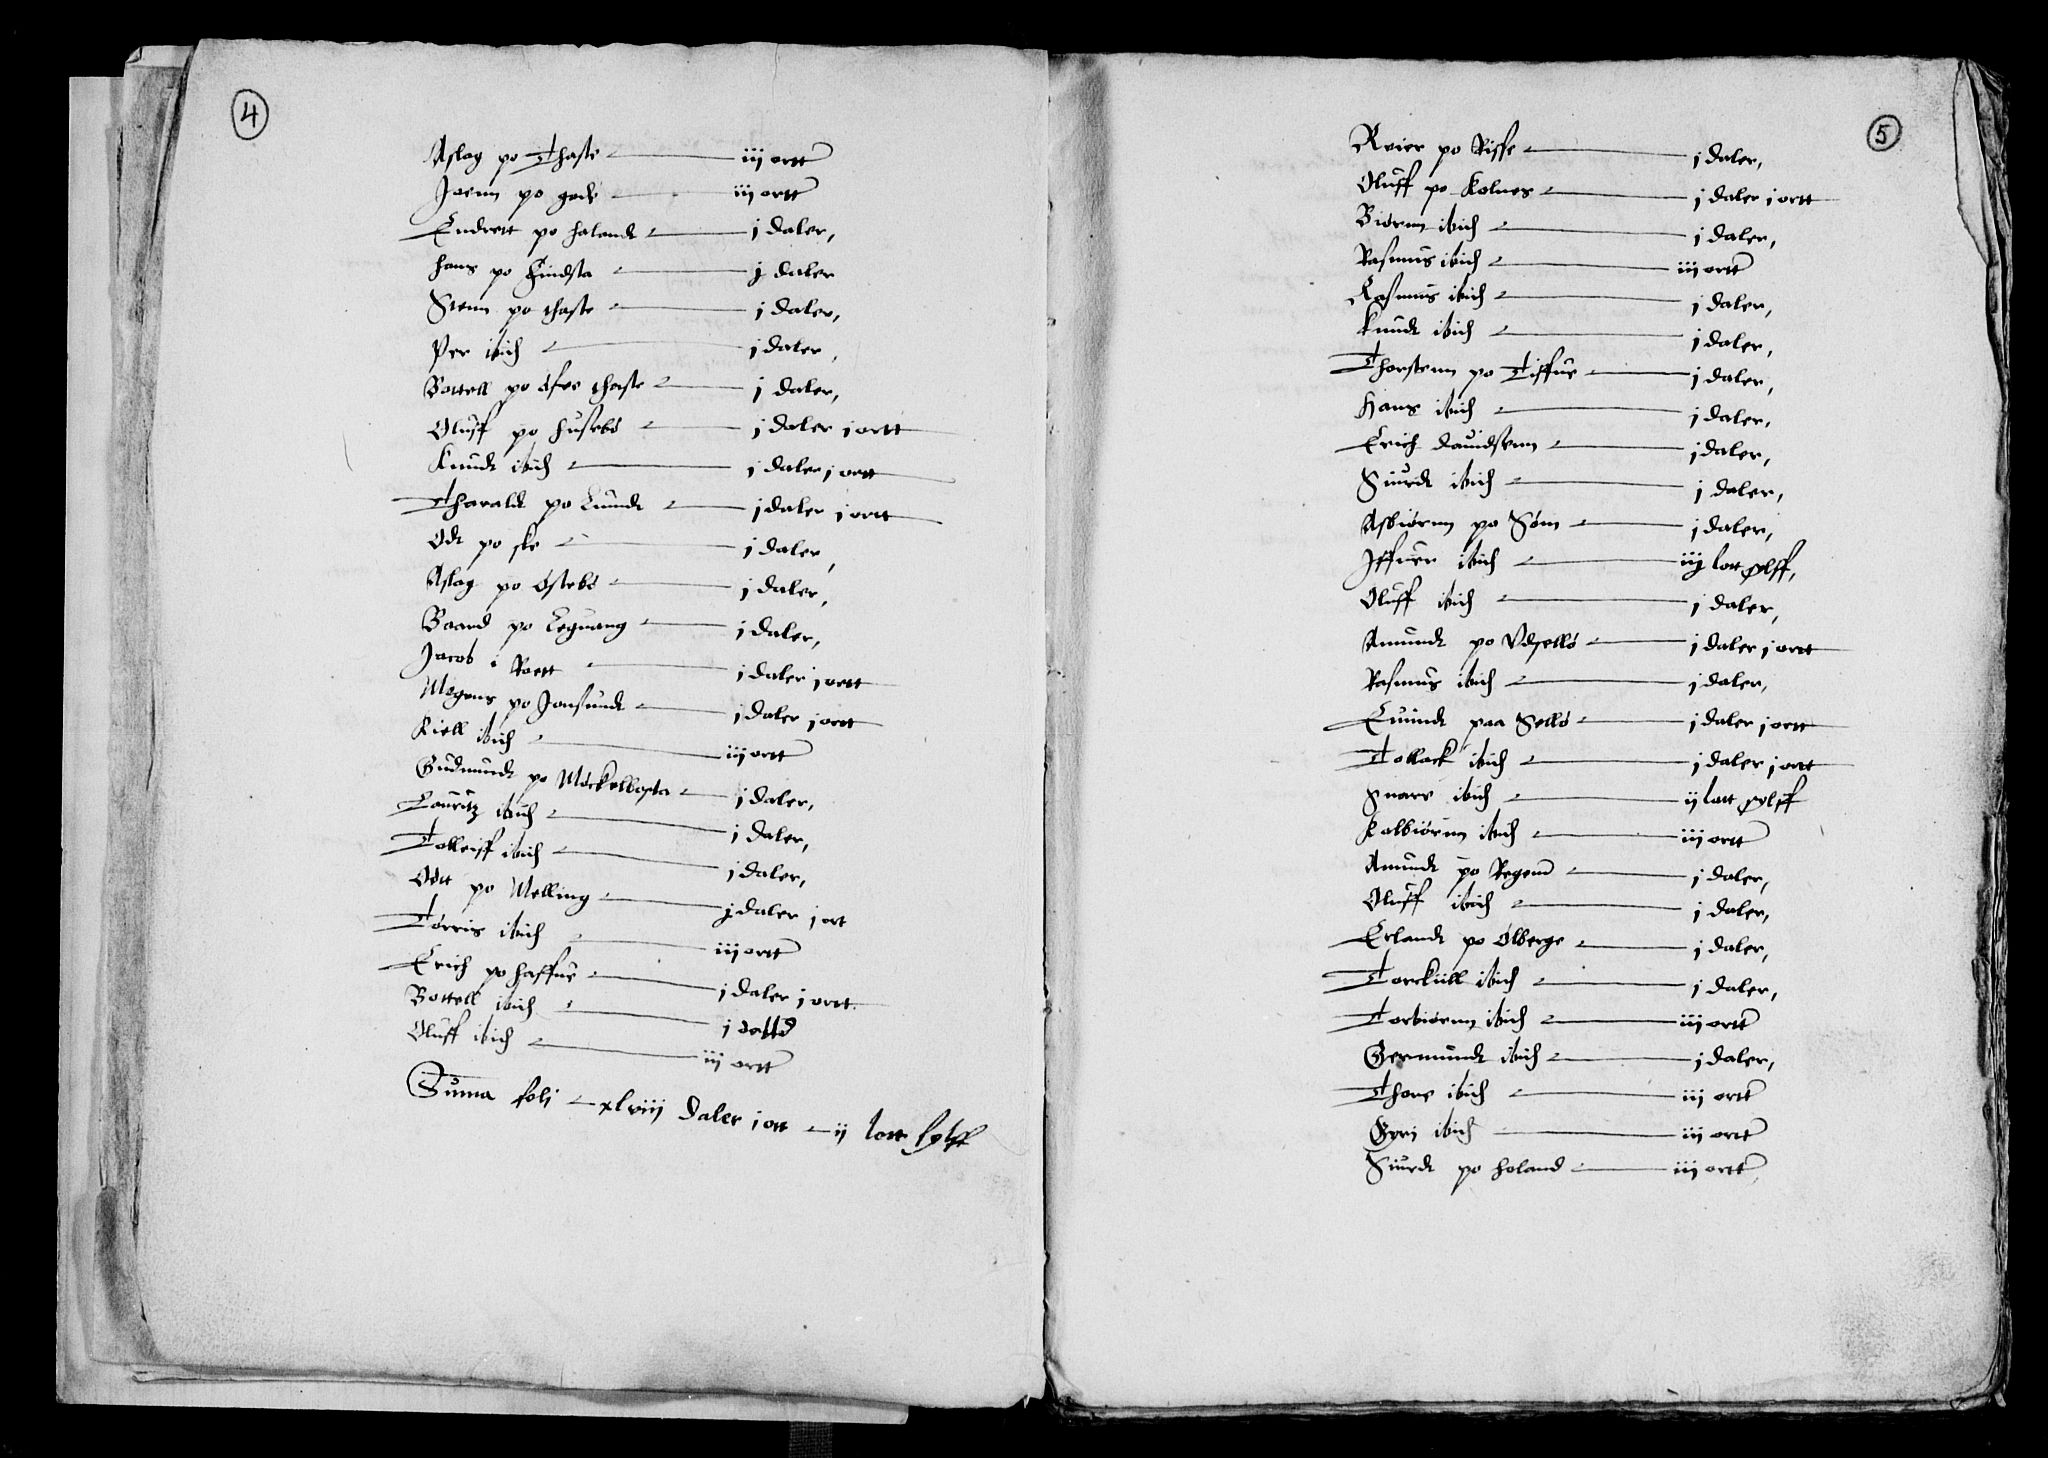 4
Aslag po Thaste — iij ortt
Joenn po gode — iij ortt
Endrett po halandt — j daler,
hans po Findsta — j daler
Stenn po thaste — j daler,
Per ibich — j daler,
Bottell po øfre thaste — j daler,
Oluff po husebø — j daler j ortt
Knudt ibich — j daler j ortt
Tharaldt po Lundt — j daler j ortt
Odt po ske — j daler,
Aslag po østebø — j daler,
Baard po Leguang — j daler,
Jacob i Roett — j daler j ortt
Mogens po Jonsundt — j daler j ortt
Kiell ibich — iij ortt
Gudmundt po Møckelbosta — j daler,
Lauritz ibich — j daler,
Tolleiff ibich — j daler,
Odtt po Melling — j daler j ort
Torris ibich — iij ortt
Erich po haffue — j daler j ortt
Bottell ibich — j
Oluff ibich — iij ortt
Suma folj — xlviij daler j ort — ij lott sølff
5
Reier po Risse — j daler,
Oluff po Kolnes — j daler j ortt
Biørnn ibich — j daler,
Rasmus ibich — iij ortt
Rasmus ibich — j daler,
Knudt ibich — j daler,
Thorstenn po Tiffue — j daler,
Hans ibich — j daler,
Erich dauidsenn — j daler,
Siurdt ibich — j daler,
Asbiørnn po Søm — j daler,
Iffuer ibich — iij lott sølff,
Oluff ibich — j daler,
Amundt po Vdsellø — j daler j ortt
Rasmus ibich — j daler,
Euindt paa Sellø — j daler j ortt
Tollack ibich — j daler j ortt
Snare ibich — ij lott sølff
Kolbiørnn ibich — iij ortt
Amundt po Regem — j daler,
Oluff ibich — j daler,
Erlandt po ølberge — j daler,
Torckiill ibich — j daler,
Torbiørnn ibich — iij ortt
Germundt ibich — j daler,
Thore ibich — iij ortt
Gyri ibich — iij ortt
Siurdt po holand — iij ortt